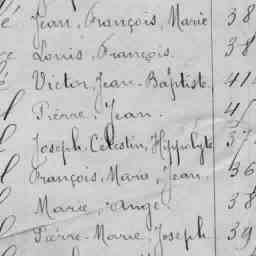 é Jean, François, Marie 38
Louis, François 38
é Victor, Jean-Baptiste 41
Pierre, Jean.
Joseph, Célestin, Hyppolyte 37
François, Marie, Jean. 36
Marie, Ange 38
Pierre-Marie, Joseph 39